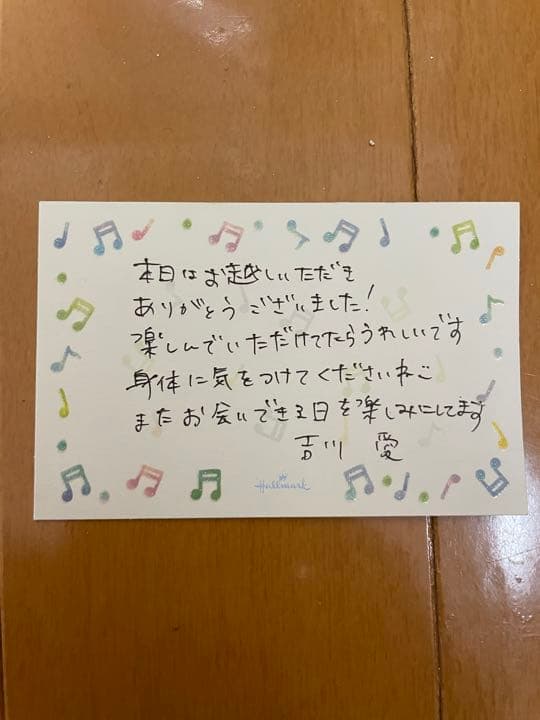 本日はお越しいただき
ありがとうございました!
楽しんでいただけてたらうれしいです
身体に気をつけてくださいねこ
またお会いできる日を楽しみにしてます
吉川 愛
Hallmark